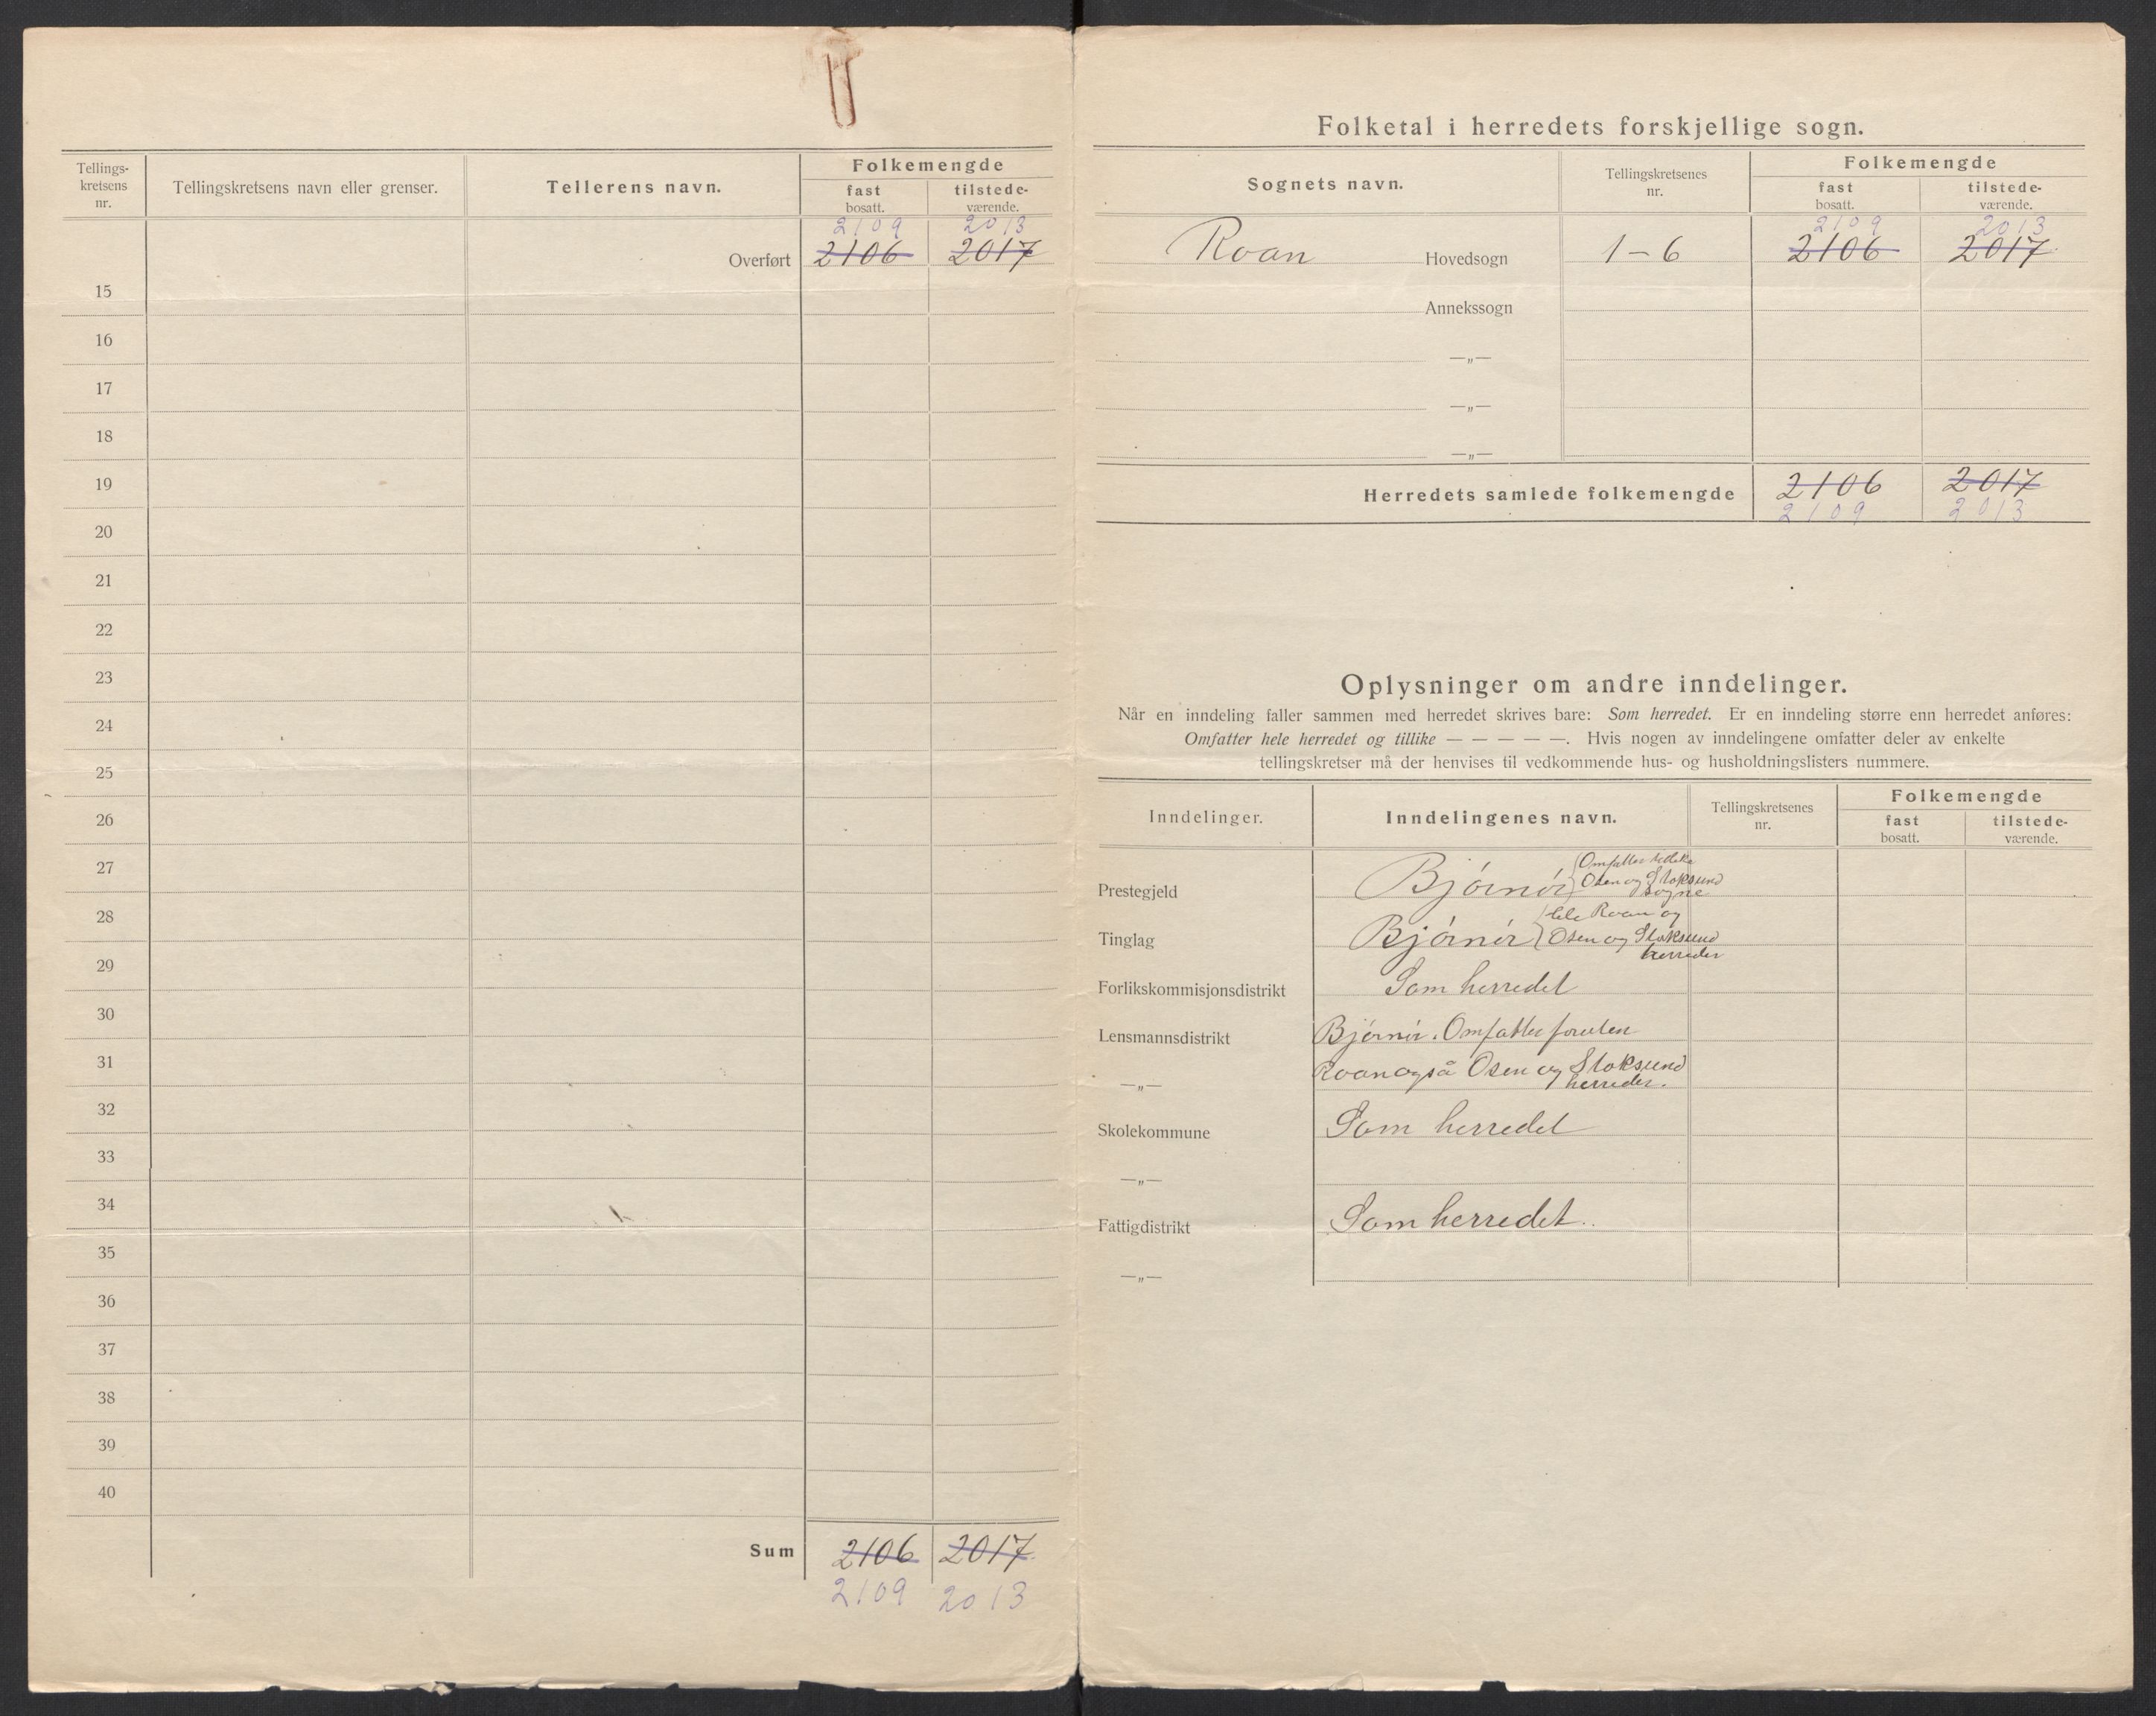 Tellings-
kretsens
nr.
Tellingskretsens navn eller grenser.
Tellerens navn.
Folkemengde
fast
bosatt.
tilstede-
værende.
2109 2013
Overført 2106 2017
15
16
17
18
19
20
21
22
23
24
25
26
27
28
29
30
31
32
33
34
35
36
37
38
39
40
Sum 2106 2017
2109 2013
Folketal i herredets forskjellige sogn.
Sognets navn.
Tellingskretsenes
nr.
Folkemengde
fast
bosatt.
tilstede-
værende.
2109 2013
Roan Hovedsogn 1-6 2106 2017
Annekssogn
—„—
—„—
—„—
Herredets samlede folkemengde 2106 2017
2109 2013
Oplysninger om andre inndelinger.
Når en inndeling faller sammen med herredet skrives bare: Som herredet. Er en inndeling større enn herredet anføres:
Omfatter hele herredet og tillike — — — — —. Hvis nogen av inndelingene omfatter deler av enkelte
tellingskretser må der henvises til vedkommende hus- og husholdningslisters nummere.
Inndelinger.
Inndelingenes navn.
Tellingskretsenes
nr.
Folkemengde
fast
bosatt.
tilstede-
værende.
Omfatter
Prestegjeld Bjørnør Osen og Stoksund
sogne
Roan og
Tinglag Bjørnør Osen og Stoksund
herreder
Forlikskommisjonsdistrikt Som herredet
Lensmannsdistrikt Bjørnør. Omfatter foruten
—„— Roan også Osen og Stoksund
herreder.
Skolekommune Som herredet
—„—
Fattigdistrikt Som herredet.
—„—